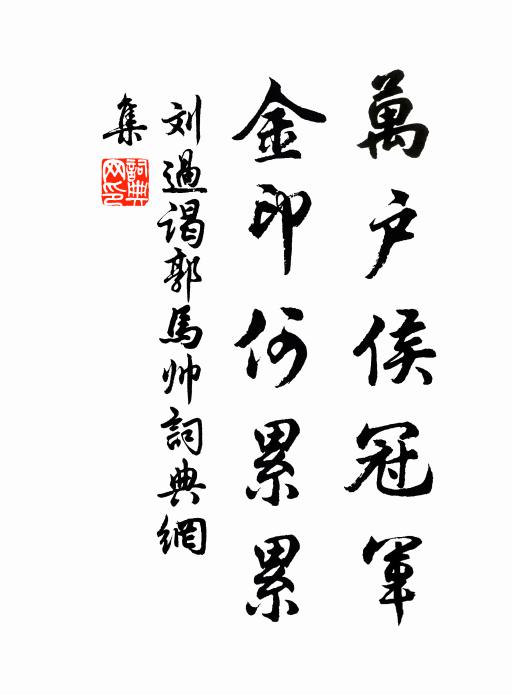 萬户侯冠軍
金印何累累
刘過謁郭馬帅詞典網
集
詞典網印